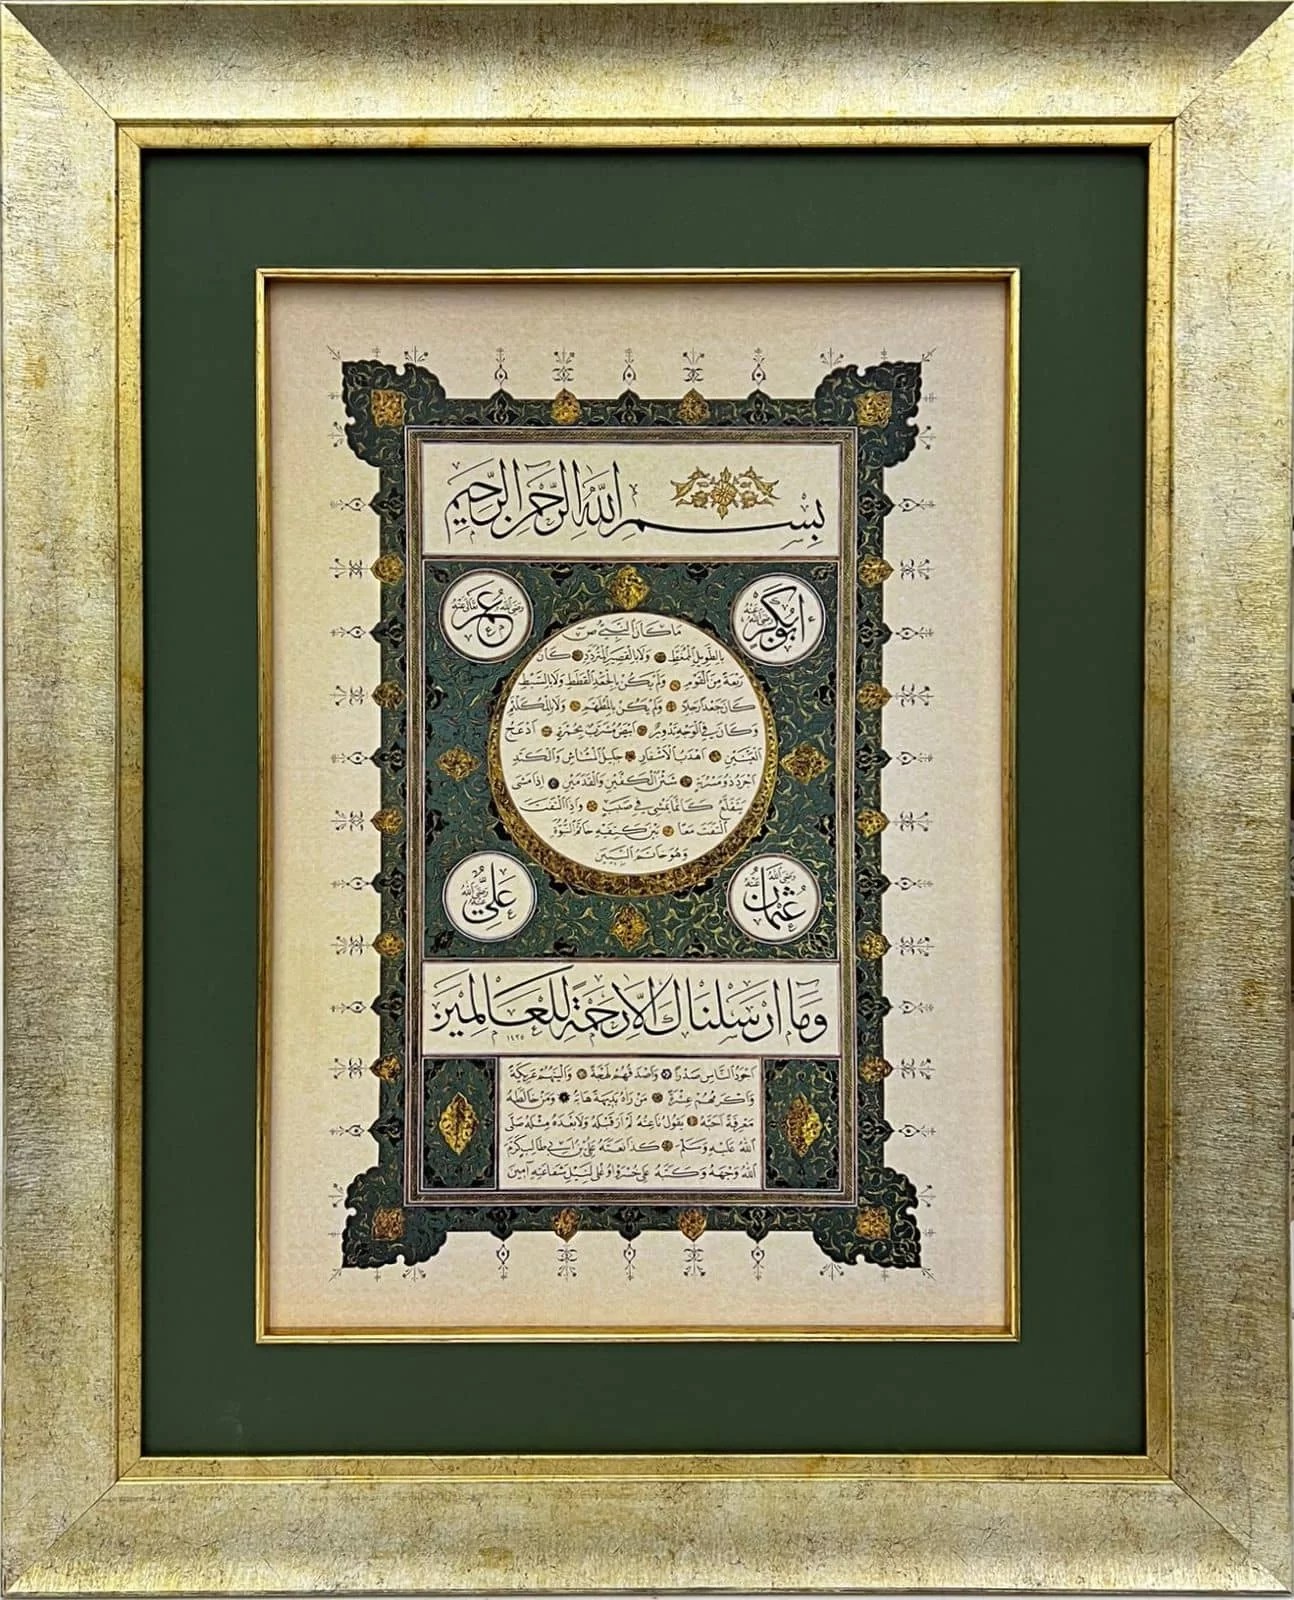 بِسْمِ اللّٰهِ الرَّحْمٰنِ الرَّحِيمِ
أَبُوبَكْرٍ رَضِيَ اللّٰهُ عَنْهُ
عُمَرُ رَضِيَ اللّٰهُ تَعَالَى عَنْهُ
مَا كَانَ النَّبِيُّ ص
بِالطَّوِيلِ الْمُمَّغِطِ وَلَا بِالْقَصِيرِ الْمُتَرَدِّدِ كَانَ
رَبْعَةً مِنَ الْقَوْمِ وَلَمْ يَكُنْ بِالْجَعْدِ الْقَطَطِ وَلَا بِالسَّبْطِ
كَانَ جَعْدًا رَجِلًا وَلَمْ يَكُنْ بِالْمُطَهَّمِ وَلَا بِالْمُكَلْثَمِ
وَكَانَ فِي الْوَجْهِ تَدْوِيرٌ اَبْيَضُ مُشْرَبٌ بِحُمْرَةٍ اَدْعَجُ
الْعَيْنَيْنِ اَهْدَبُ الْاَشْفَارِ جَلِيلُ الْمُشَاشِ وَالْكَتَدِ
اَجْرَدُ ذُو مَسْرُبَةٍ شَثْنُ الْكَفَّيْنِ وَالْقَدَمَيْنِ اِذَا مَشَى
يَتَقَلَّعُ كَاَنَّمَا يَمْشِي فِي صَبَبٍ وَاِذَا الْتَفَتَ
الْتَفَتَ مَعًا بَيْنَ كَتِفَيْهِ خَاتَمُ النُّبُوَّةِ
وَهُوَ خَاتَمُ النَّبِيِّينَ
عُثْمَانُ رَضِيَ اللّٰهُ عَنْهُ
عَلِيٌّ رَضِيَ اللّٰهُ عَنْهُ
وَمَا اَرْسَلْنَاكَ اِلَّا رَحْمَةً لِلْعَالَمِينَ
١٤٢٥
اَجْوَدُ النَّاسِ صَدْرًا وَاَصْدَقُهُمْ لَهْجَةً وَاَلْيَنُهُمْ عَرِيكَةً
وَاَكْرَمُهُمْ عِشْرَةً مَنْ رَاٰهُ بَدِيهَةً هَابَهُ وَمَنْ خَالَطَهُ
مَعْرِفَةً اَحَبَّهُ يَقُولُ نَاعِتُهُ لَمْ اَرَ قَبْلَهُ وَلَا بَعْدَهُ مِثْلَهُ صَلَّى
اللّٰهُ عَلَيْهِ وَسَلَّمَ كَذَا نَعَتَهُ عَلِيُّ بْنُ اَبِي طَالِبٍ كَرَّمَ
اللّٰهُ وَجْهَهُ وَكَتَبَهُ عَلِي خُسْرَوْ اُوغْلِي لِنَيْلِ شَفَاعَتِهِ آمِينَ